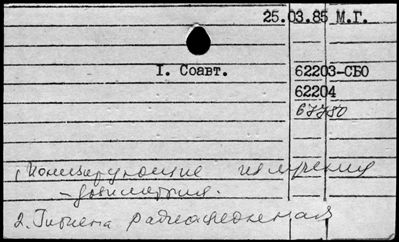 25.03.85 М.Г.
I. Соавт. 62203-СБО
62204
67750
1 Ионизирующие излучения
- дозиметрия.
2. Гигиена радиационная